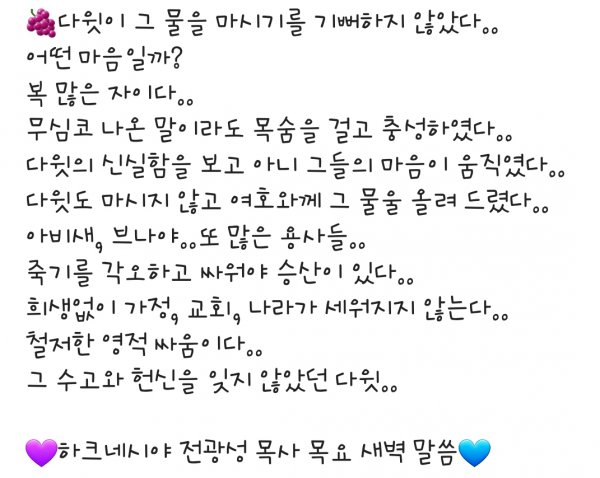 🍇다윗이 그 물을 마시기를 기뻐하지 않았다..
어떤 마음일까?
복 많은 자이다..
무심코 나온 말이라도 목숨을 걸고 충성하였다..
다윗의 신실함을 보고 아니 그들의 마음이 움직였다..
다윗도 마시지 않고 여호와께 그 물울 올려 드렸다..
아비새, 브나야..또 많은 용사들..
죽기를 각오하고 싸워야 승산이 있다..
희생없이 가정, 교회, 나라가 세워지지 않는다..
철저한 영적 싸움이다..
그 수고와 헌신을 잊지 않았던 다윗..
💜하크네시야 전광성 목사 목요 새벽 말씀💙